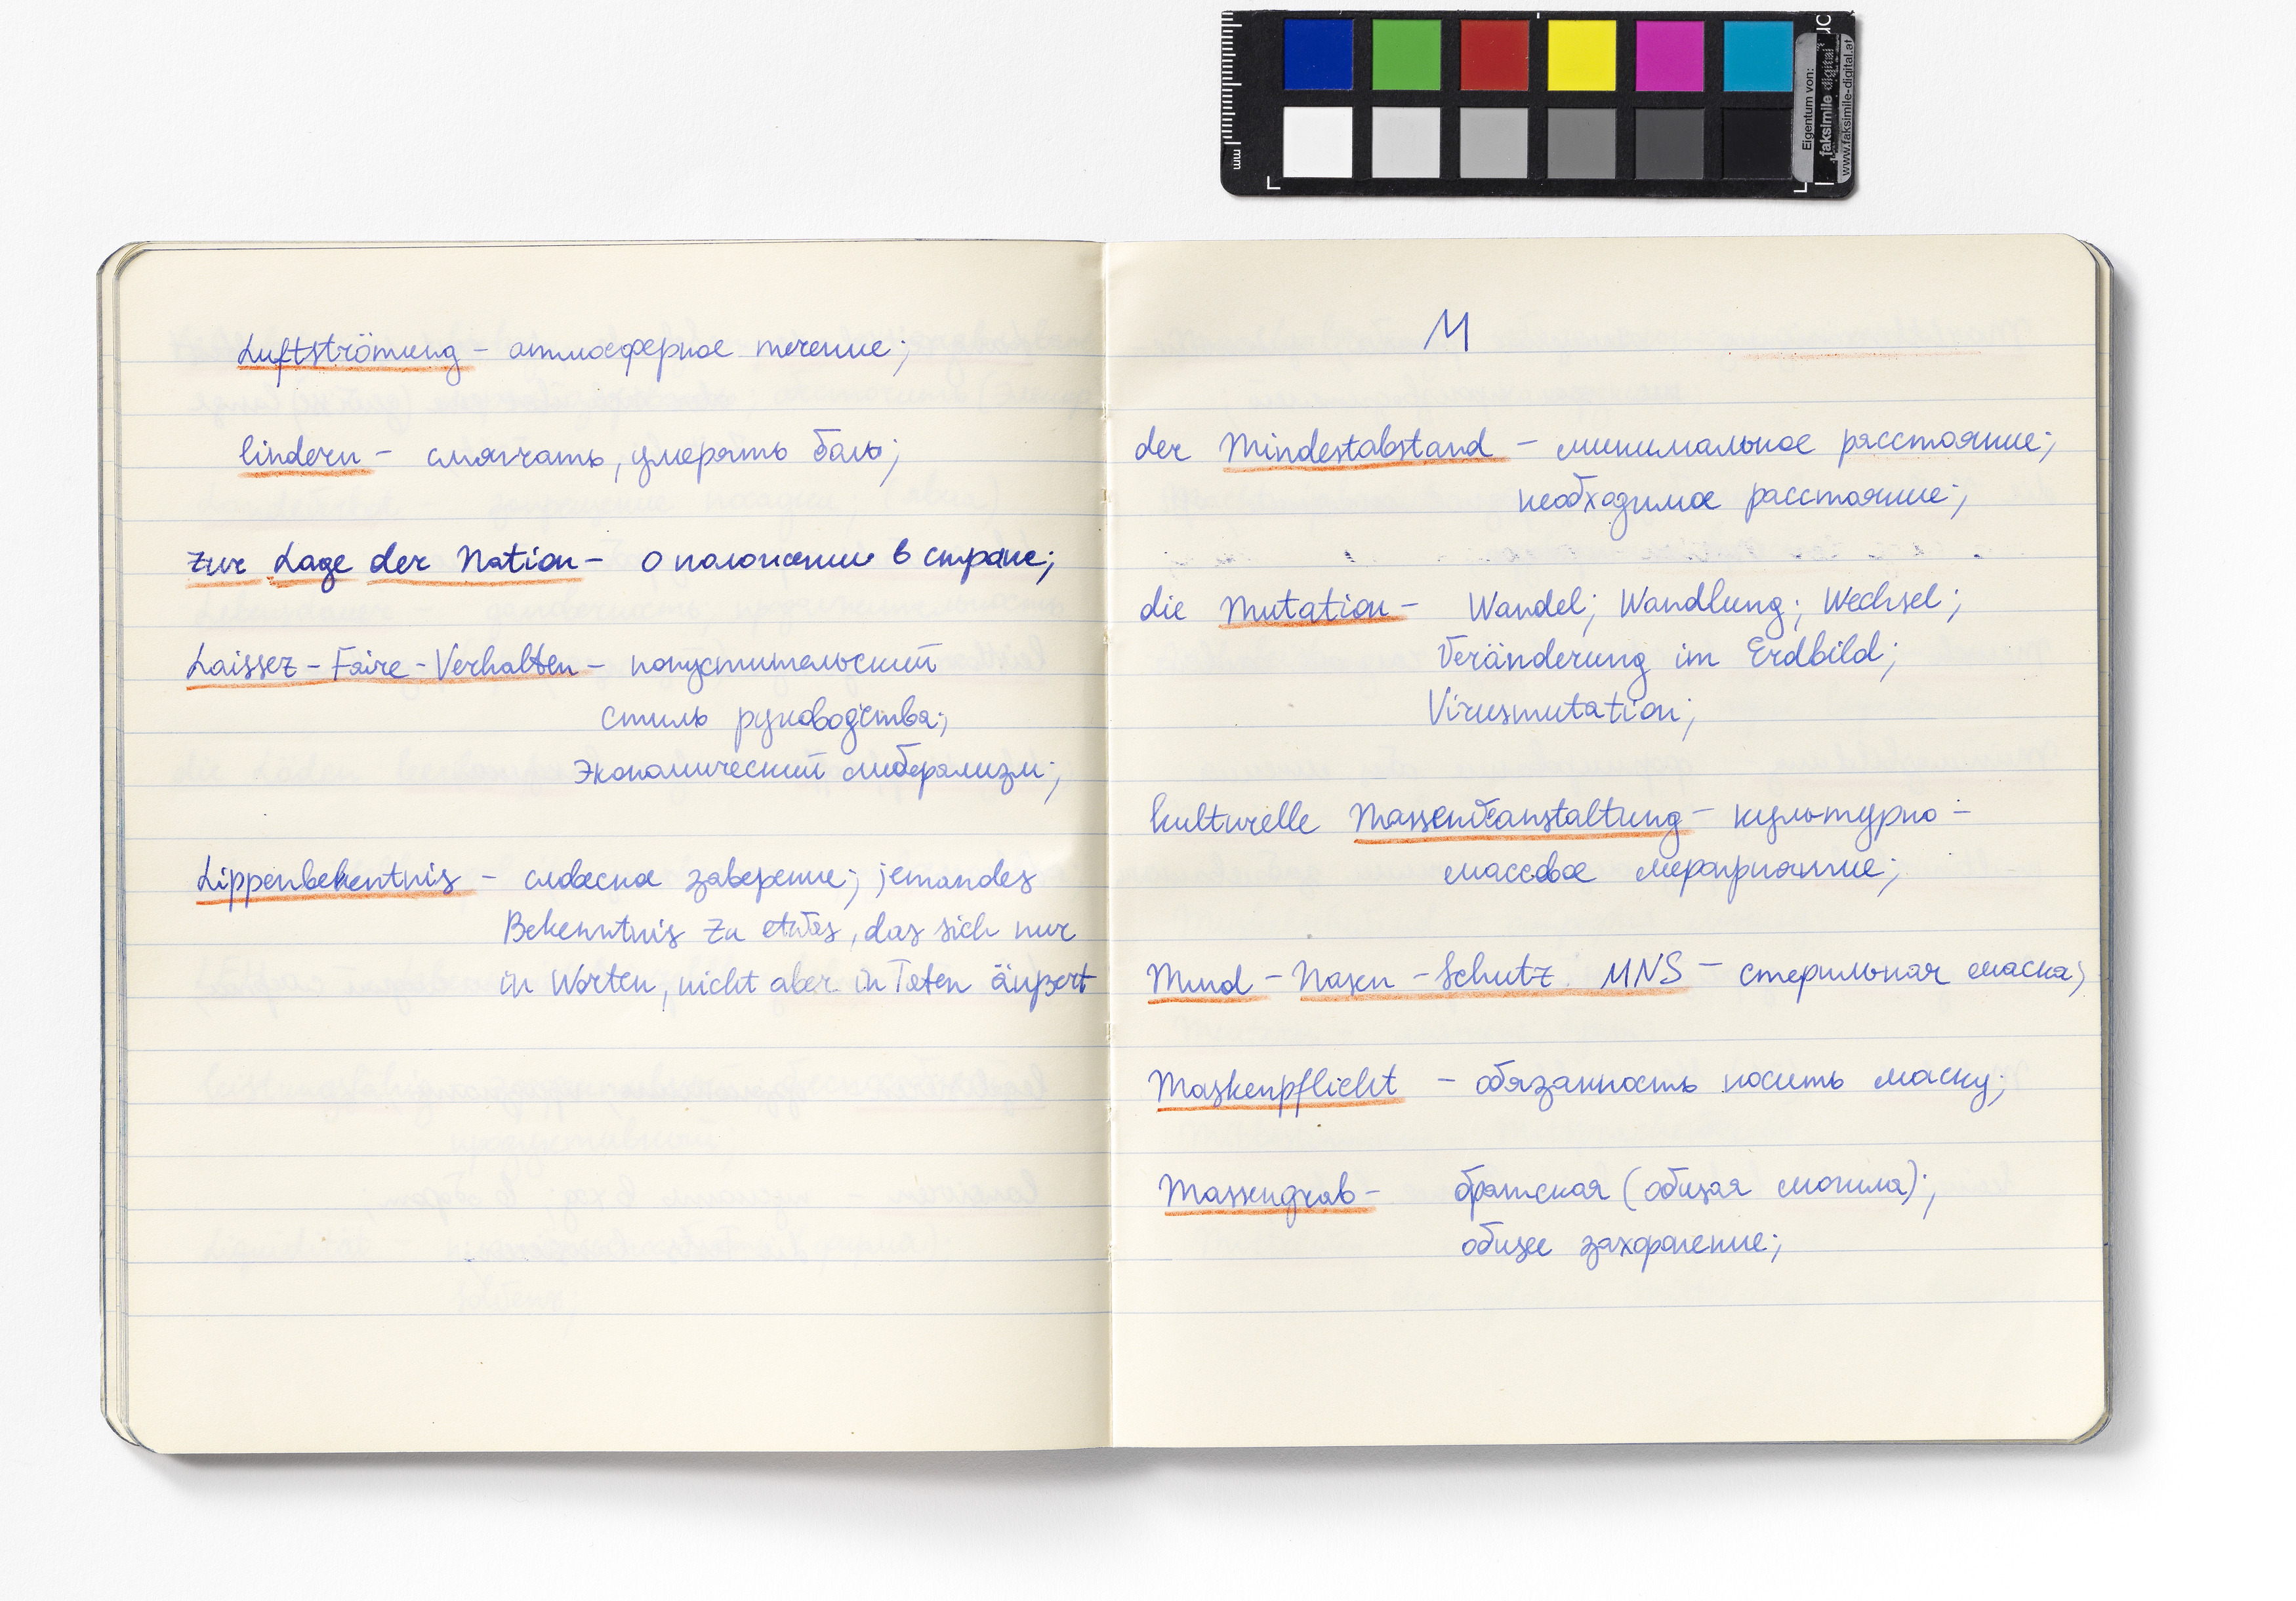 Luftströmung - атмосферное течение;
lindern - смягчать, умерять боль;
zur Lage der Nation - о положении в стране;
Laissez-Faire-Verhalten - попустительский
стиль руководства;
Экономический либерализм;
Lippenbekentnis - словесное заверение; jemandes
Bekenntnis zu etwas, das sich nur
in Worten, nicht aber in Taten äußert
M
der Mindestabstand - минимальное расстояние;
необходимое расстояние;
die Mutation - Wandel; Wandlung; Wechsel;
Veränderung im Erdbild;
Virusmutation;
kulturelle - культурно-
массовое мероприятие;
Mund-Nasen-Schutz. MNS - стерильная маска;
Maskenpflicht - обязанность носить маску;
Massengrab - братская (общая могила);
общее захоронение;
mm
Eigentum von:
faksimile digital
www.faksimile-digital.at